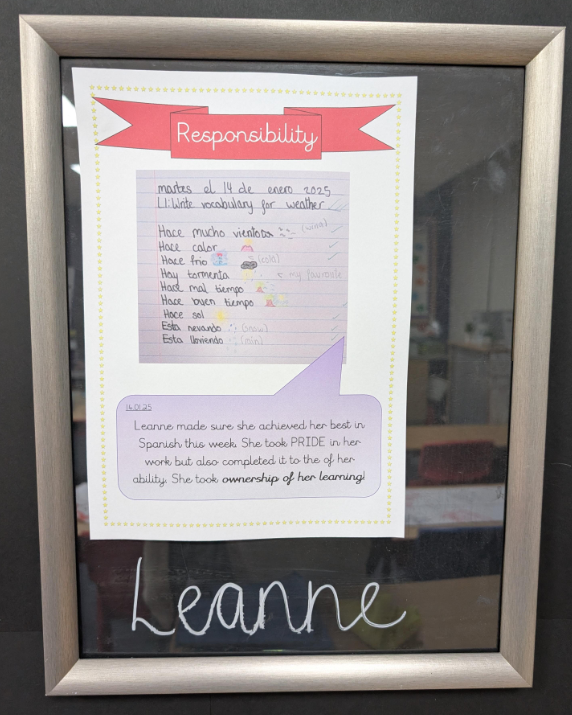 Responsibility
martes el 14 de enero 2025
LI: Write vocabulary for weather
Hace mucho vientoso (wind)
Hace calor
Hace frio (cold)
Hay tormenta ← my favroite
Hace mal tiempo
Hace buen tiempo
Hace sol
Esta nevando (snow)
Esta lloviendo (rain)
16.01.25
Leanne made sure she achieved her best in
Spanish this week. She took PRIDE in her
work but also completed it to the of her
ability. She took ownership of her learning!
Leanne